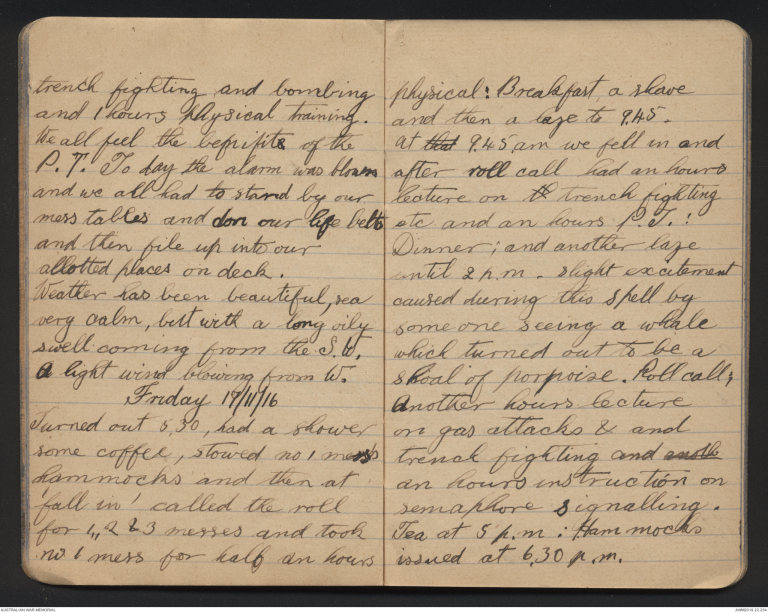 trench fighting and bombing
and 1 hours physical training.
We all feel the befnifits of the
P. T. To day the alarm was blown
and we all had to stand by our
mess tables and don our life belts
and then file up into our
allotted places on deck.
Weather has been beautiful, sea
very calm, but with a long oily
swell coming from the S.W.
A light wind blowing from W.
Friday 17/11/16
Turned out 5.30, had a shower
some coffee, stowed no 1 mess's
hammocks and then at
'fall in' called the roll
for 1, 2 & 3 messes and took
no. 1 mess for half an hours
physical: Breakfast, a shave
and then a laze to 9.45.
at that 9.45 am we fell in and
after roll call had an hours
lecture on th trench fighting
etc and an hours P.T.:
Dinner; and another laze
until 2 p.m. slight excitement
caused during this spell by
someone seeing a whale
which turned out to be a
shoal of porpoise. Roll call;
Another hours lecture
on gas attacks & and
trench fighting and anoth
an hours instruction on
semaphore signalling.
Tea at 5 p.m: Hammocks
issued at 6.30 p.m.
AUSTRALIAN WAR MEMORIAL